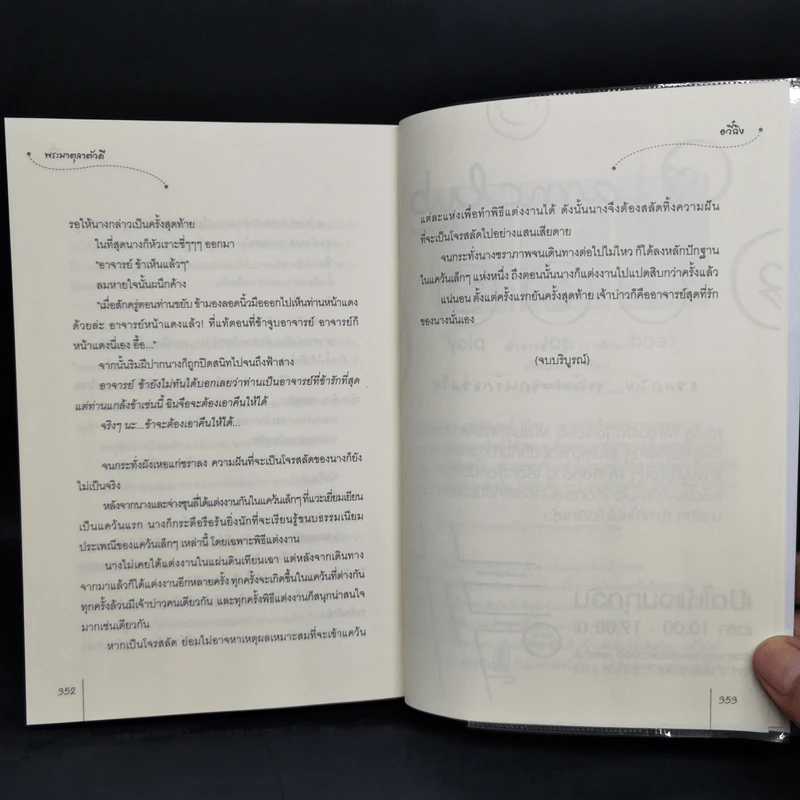 พระมาตุลาตัวดี
รอให้นางกล่าวเป็นครั้งสุดท้าย
ในที่สุดนางก็หัวเราะชี่ๆๆๆ ออกมา
"อาจารย์ ข้าเห็นแล้วๆ"
ลมหายใจนั้นผนึกค้าง
"เมื่อสักครู่ตอนท่านขยับ ข้ามองลอดนิ้วมือออกไปเห็นท่านหน้าแดง
ด้วยล่ะ อาจารย์หน้าแดงแล้ว! ที่แท้ตอนที่ข้าจูบอาจารย์ อาจารย์ก็
หน้าแดงนี่เอง อื้อ..."
จากนั้นริมฝีปากนางก็ถูกปิดสนิทไปจนถึงฟ้าสาง
อาจารย์ ข้ายังไม่ทันได้บอกเลยว่าท่านเป็นอาจารย์ที่ข้ารักที่สุด
แต่ท่านแกล้งข้าเช่นนี้ ฉินจือจะต้องเอาคืนให้ได้
จริงๆ นะ...ข้าจะต้องเอาคืนให้ได้...
จนกระทั่งผังเหอแก่ชราลง ความฝันที่จะเป็นโจรสลัดของนางก็ยัง
ไม่เป็นจริง
หลังจากนางและจ่างซุนลี่ได้แต่งงานกันในแคว้นเล็กๆ ที่แวะเยี่ยมเยียน
เป็นแคว้นแรก นางก็กระตือรือร้นยิ่งนักที่จะเรียนรู้ขนบธรรมเนียม
ประเพณีของแคว้นเล็กๆ เหล่านี้ โดยเฉพาะพิธีแต่งงาน
นางไม่เคยได้แต่งงานในแผ่นดินเทียนเฉา แต่หลังจากเดินทาง
จากมาแล้วก็ได้แต่งงานอีกหลายครั้ง ทุกครั้งจะเกิดขึ้นในแคว้นที่ต่างกัน
ทุกครั้งล้วนมีเจ้าบ่าวคนเดียวกัน และทุกครั้งพิธีแต่งงานก็สนุกน่าสนใจ
มากเช่นเดียวกัน
หากเป็นโจรสลัด ย่อมไม่อาจหาเหตุผลเหมาะสมที่จะเข้าแคว้น
352
อวี๋ฉิง
แต่ละแห่งเพื่อทำพิธีแต่งงานได้ ดังนั้นนางจึงต้องสลัดทิ้งความฝัน
ที่จะเป็นโจรสลัดไปอย่างแสนเสียดาย
จนกระทั่งนางชราภาพจนเดินทางต่อไปไม่ไหว ก็ได้ลงหลักปักฐาน
ในแคว้นเล็กๆ แห่งหนึ่ง ถึงตอนนั้นนางก็แต่งงานไปแปดสิบกว่าครั้งแล้ว
แน่นอน ตั้งแต่ครั้งแรกยันครั้งสุดท้าย เจ้าบ่าวก็คืออาจารย์สุดที่รัก
ของนางนั่นเอง
(จบบริบูรณ์)
353